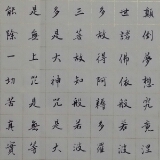 顛倒夢想究竟涅
世諸佛依般若波
多故得阿耨多羅
三菩故知般若波
多是大神咒是大
是無上咒是無等
能除一切苦真實